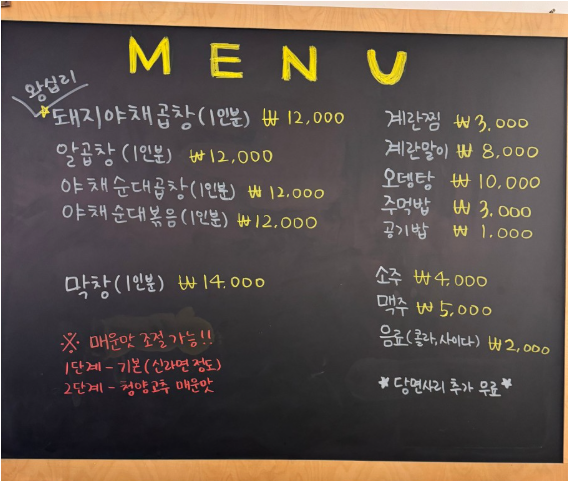 MENU
왕십리
돼지야채곱창(1인분) ₩12,000
알곱창(1인분) ₩12,000
야채순대곱창(1인분) ₩12,000
야채순대볶음(1인분) ₩12,000
막창(1인분) ₩14,000
※ 매운맛 조절가능!!
1단계 - 기본(신라면정도)
2단계 - 청양고추 매운맛
계란찜 ₩3,000
계란말이 ₩8,000
오뎅탕 ₩10,000
주먹밥 ₩3,000
공기밥 ₩1,000
소주 ₩4,000
맥주 ₩5,000
음료(콜라,사이다) ₩2,000
★당면사리 추가 유료★